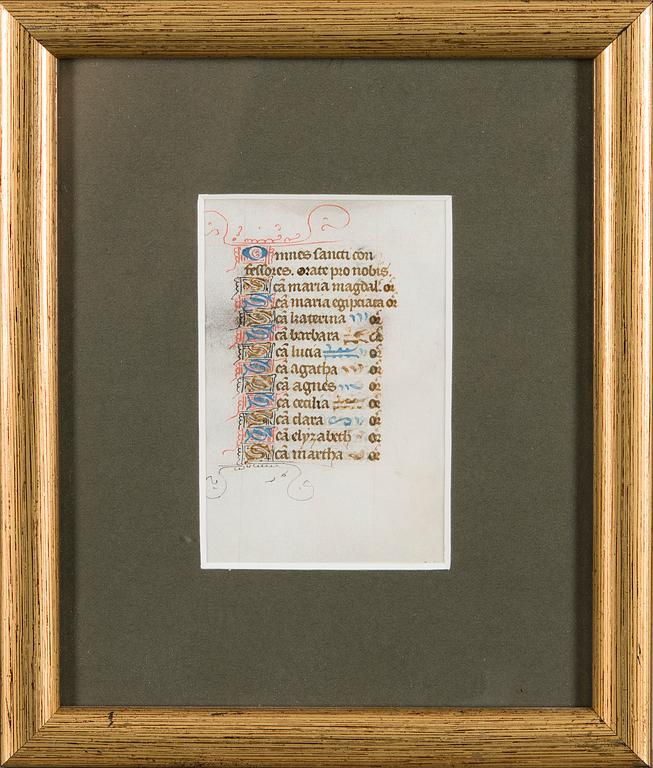 Omnes sancti con
fessores. orate pro nobis.
Scã maria magdal. or
Scã maria egipciaca or
Scã katerina or
Scã barbara or
Scã lucia or
Scã agatha or
Scã agnes or
Scã cecilia or
Scã clara or
Scã elyzabeth or
Scã martha or